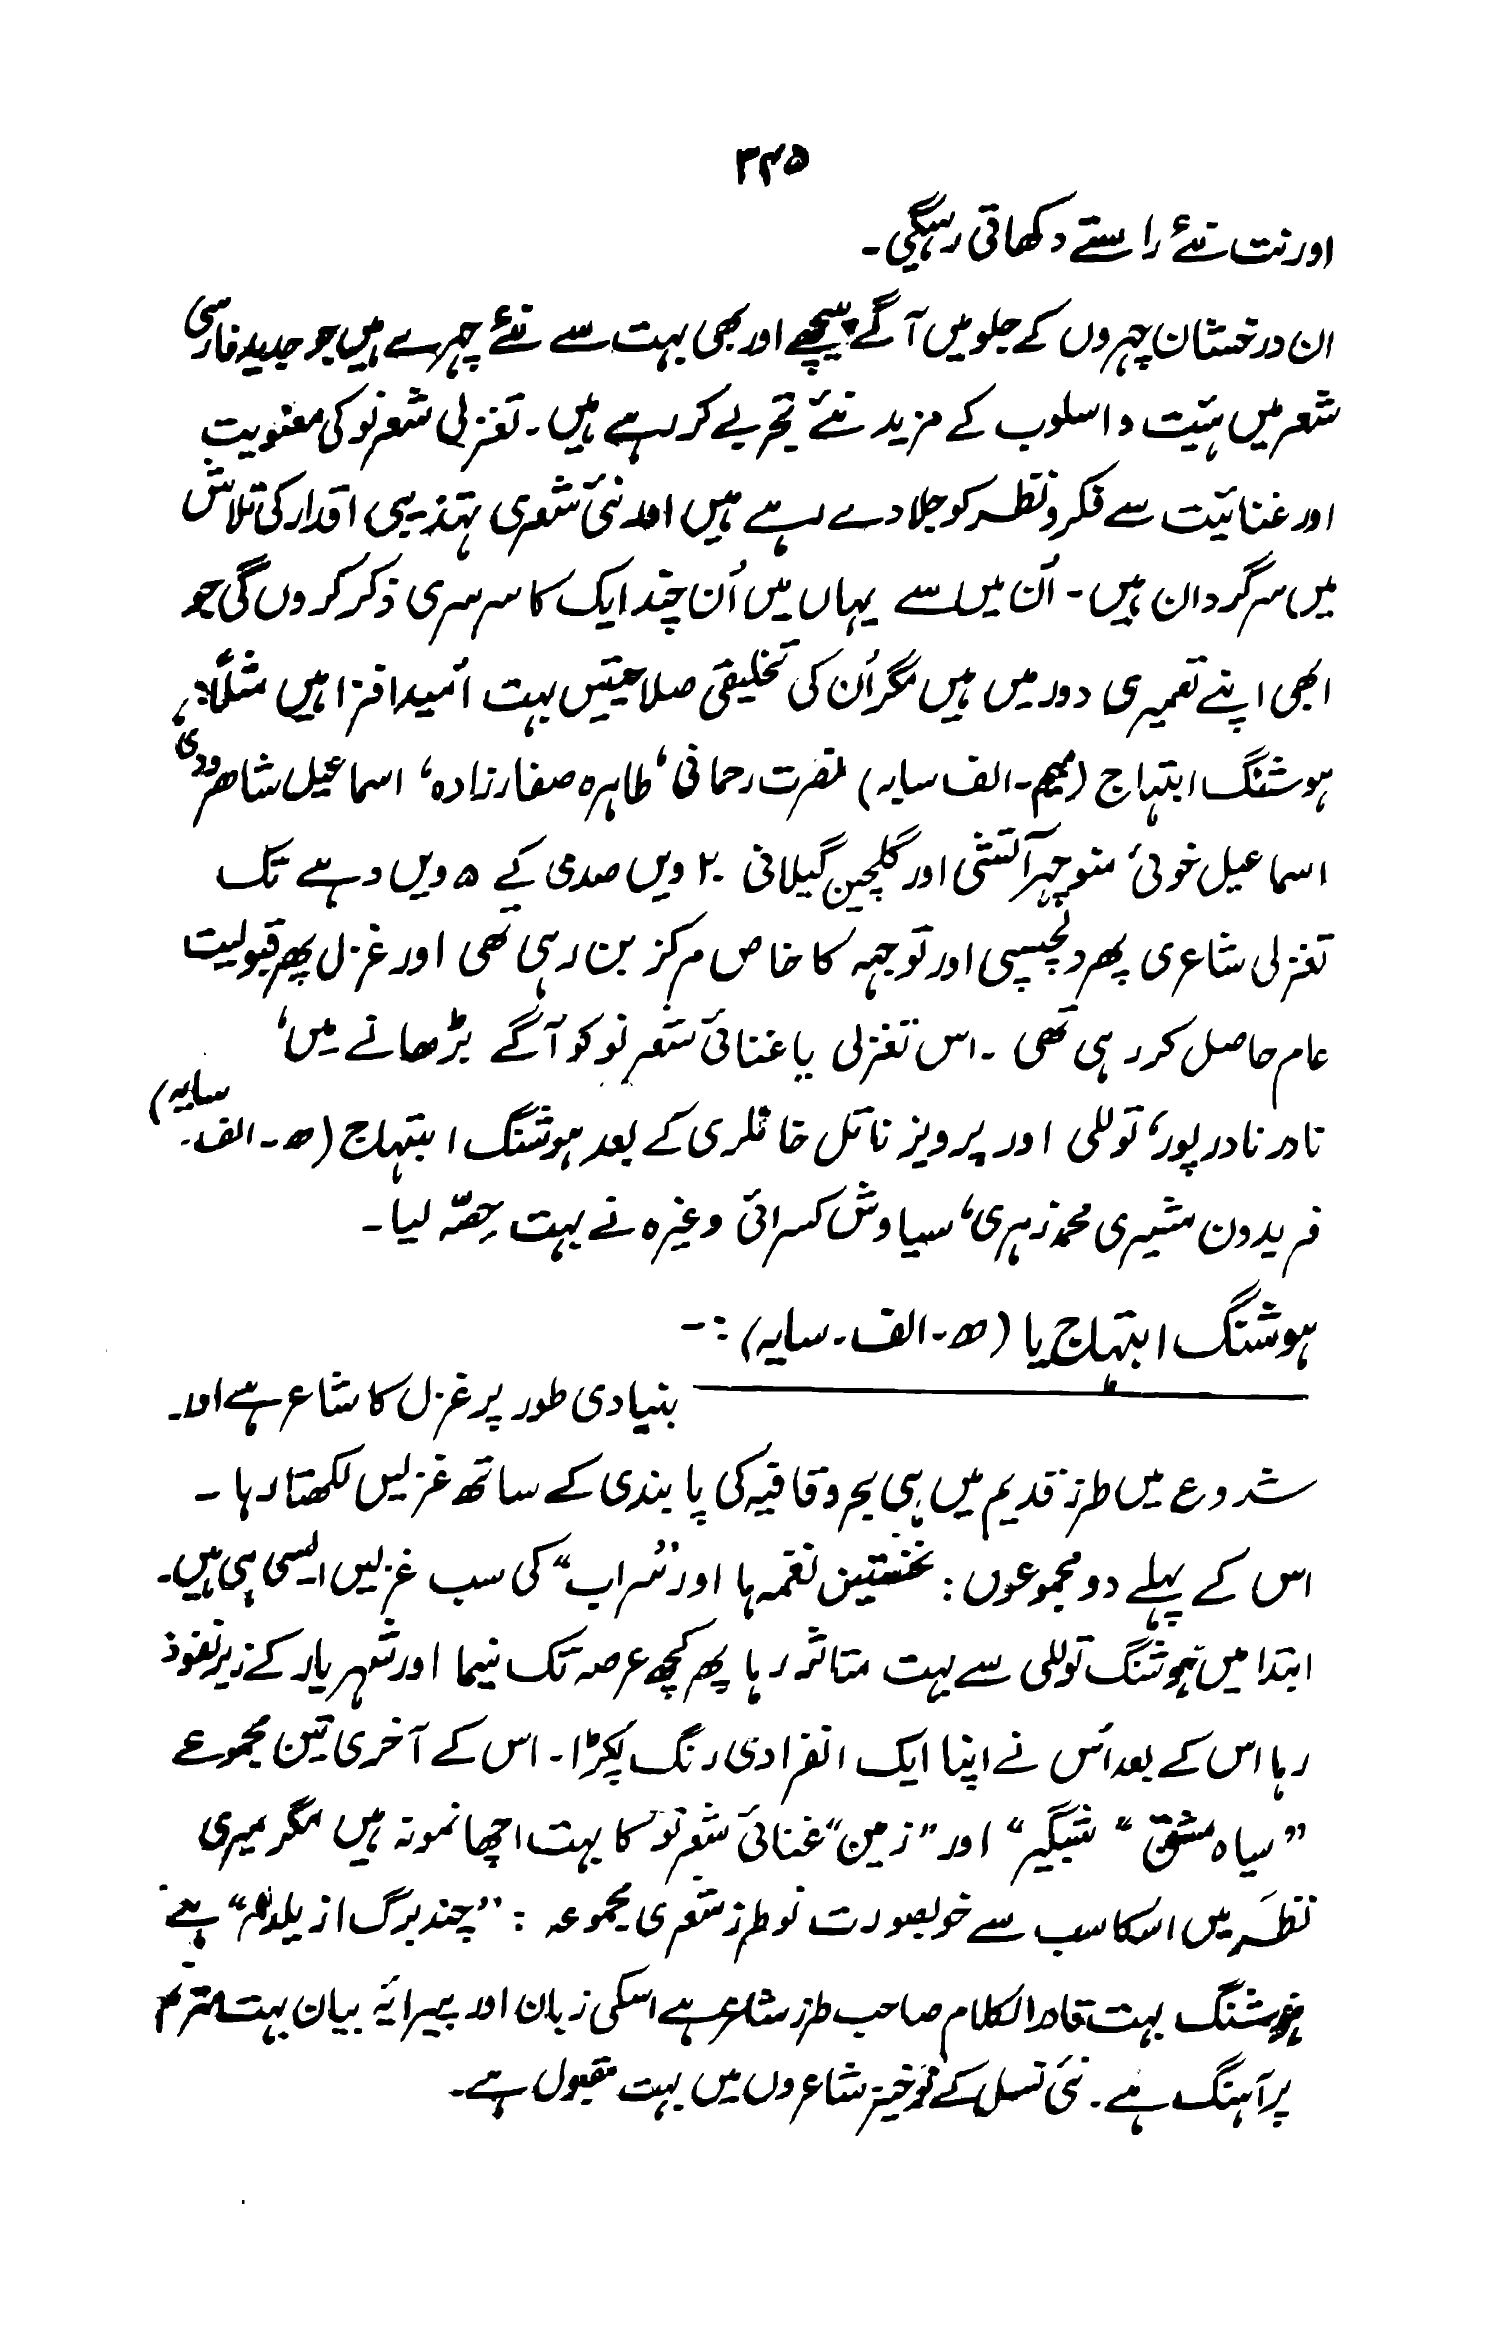 ۳۴۵
اور نت نئے راستے دکھاتی رہیگی۔
ان درخشان چہروں کے جلو میں آگے پیچھے اور بھی بہت سے نئے چہرے ہیں جو جدید فارسی
شعر میں ہئیت و اسلوب کے مزید نئے تجربے کر رہے ہیں۔ تغزلی شعر نو کی معنویت
اور غنائیت سے فکر و نظر کو جلا دے رہے ہیں اور نئی شعری تہذیبی اقدار کی تلاش
میں سرگردان ہیں۔ اُن میں سے یہاں میں اُن چند ایک کا سرسری ذکر کروں گی جو
ابھی اپنے تعمیری دور میں ہیں مگر اُن کی تخلیقی صلاحیتیں بہت اُمید افزا ہیں مثلاً:،
ہوشنگ ابتہاج (میم۔الف سایہ) نصرت رحمانی، طاہرہ صفارزادہ، اسماعیل شاھرودی
اسماعیل خوئی، منوچہر آتشی اور گلچین گیلانی ۲۰ ویں صدی کے ۵ ویں دہے تک
تغزلی شاعری پھر دلچسپی اور توجہہ کا خاص مرکز بن رہی تھی اور غزل پھر قبولیت
عام حاصل کر رہی تھی ۔ اس تغزلی یا غنائی شعر نو کو آگے بڑھانے میں،
نادر نادرپور، توللی اور پرویز ناتل خانلری کے بعد ہوشنگ ابتہاج (ھ۔الف۔ سایہ)
فریدون مشیری محمد زہری، سیاوش کسرائی وغیرہ نے بہت حِصّہ لیا۔
ہوشنگ ابتہاج یا (ھ۔الف۔سایہ) :۔
بنیادی طور پر غزل کا شاعر ہے اور
شروع میں طرز قدیم میں ہی بحر و قافیہ کی پابندی کے ساتھ غزلیں لکھتا رہا ۔
اس کے پہلے دو مجموعوں : نخستین نغمہ ہا اور "سُراب" کی سب غزلیں ایسی ہی ہیں۔
ابتدا میں ہوشنگ توللی سے بہت متاثر رہا پھر کچھ عرصہ تک نیما اور شہریار کے زیر نفوذ
رہا اس کے بعد اُس نے اپنا ایک انفرادی رنگ پکڑا۔ اس کے آخری تین مجموعے
"سیاہ مشق" شبگیر" اور "زمین" غنائی شعر نو کا بہت اچھا نمونہ ہیں مگر میری
نظر میں اسکا سب سے خوبصورت نو طرز شعری مجموعہ : "چند برگ از یلدا" ہے
ہوشنگ بہت قادر الکلام صاحب طرز شاعر ہے اسکی زبان اور پیرائیہ بیان بہت مترنم
پر آہنگ ہے۔ نئی نسل کے نوخیز شاعروں میں بہت مقبول ہے۔